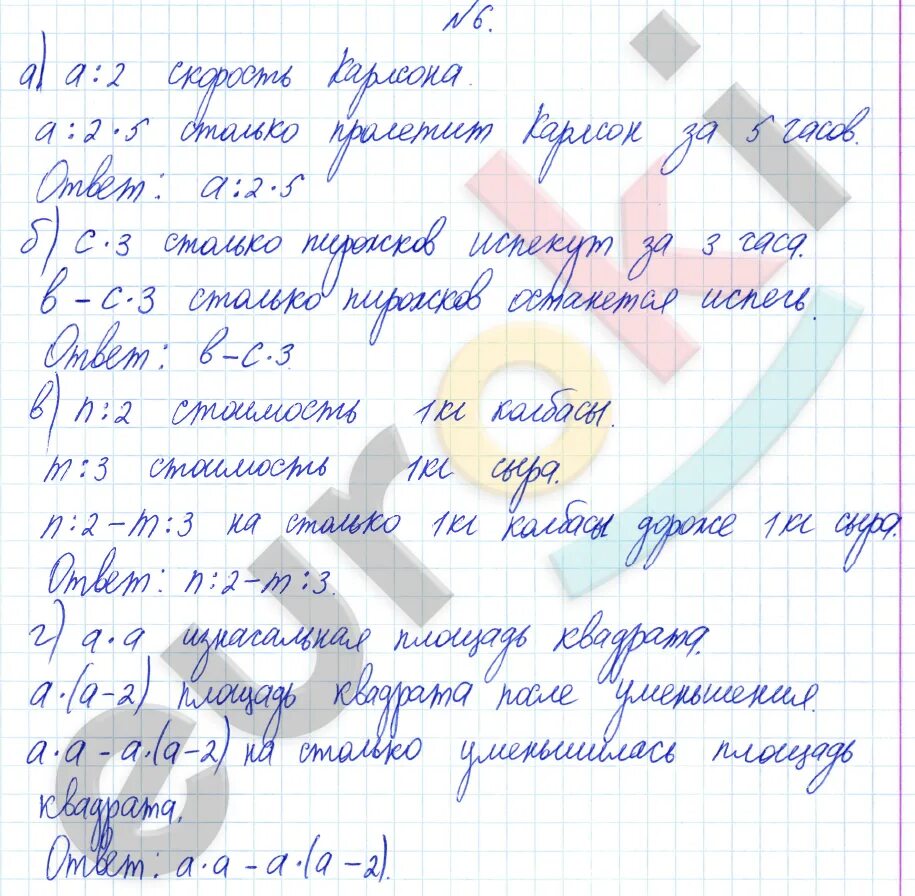 №6.
а) а:2 скорость Карлсона.
а:2·5 столько пролетит Карлсон за 5 часов.
Ответ: а:2·5
б) с·3 столько пирожков испекут за 3 часа.
в–с·3 столько пирожков останется испечь.
Ответ: в–с·3.
в) n:2 стоимость 1кг колбасы.
m:3 стоимость 1кг сыра.
n:2–m:3 на столько 1кг колбасы дороже 1кг сыра.
Ответ: n:2–m:3.
г) а·а изначальная площадь квадрата.
а·(а–2) площадь квадрата после уменьшения.
а·а – а·(а–2) на столько уменьшилась площадь
квадрата.
Ответ: а·а – а·(а–2).
euroki